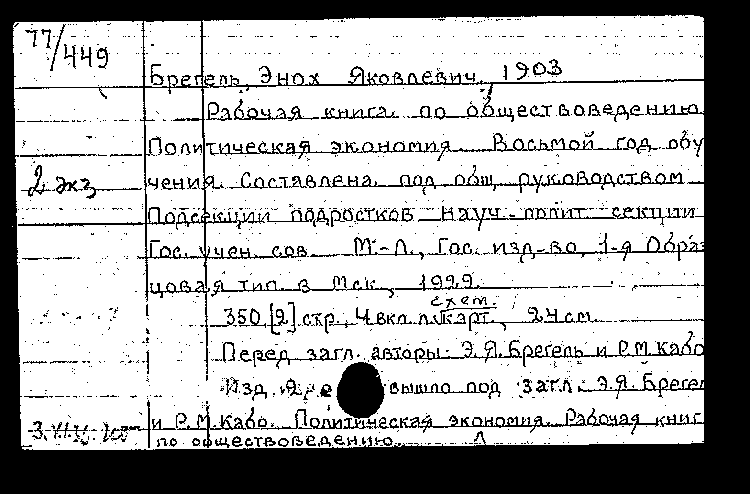 77/449
Брегель, Энох Яковлевич, 1903
Рабочая книга по обществоведению
Политическая экономия. Восьмой год обу
2 экз
чения. Составлена под общ. руководством
Подсекции подростков науч-полит секции
Гос. учен. сов. М.-Л., Гос. изд-во, 1-я Образ
цовая тип. в Мск., 1929.
схем.
350,[2] стр., 4 вкл. л. карт., 24 см.
Перед загл. авторы: Э.Я.Брегель и Р.М.Кабо
Изд. 2 вышло под загл.: Э.Я. Брегел
и Р.М.Кабо. Политическая экономия. Рабочая книг
по обществоведению.